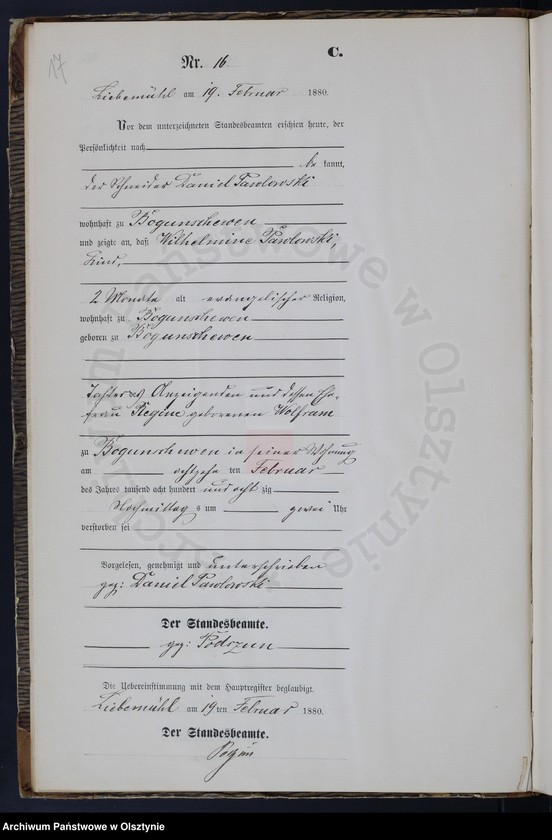 17
C.
Nr. 16
Liebemühl am 19. Februar 1880.
Vor dem unterzeichneten Standesbeamten erschien heute, der
Persönlichkeit nach
be kannt,
der Schneider Daniel Pawlowski
wohnhaft zu Bogunschewen
und zeigte an, daß Wilhelmine Pawlowski,
Kind,
2 Monate alt evangelischer Religion,
wohnhaft zu Bogunschewen
geboren zu Bogunschewen
Tochter des Anzeigenden und dessen Ehe-
frau Regine geborenen Wolfram
zu Bogunschewen in seiner Wohnung
am achtzehn ten Februar
des Jahres tausend acht hundert und acht zig
Nachmittag s um zwei Uhr
verstorben sei
Vorgelesen, genehmigt und unterschrieben
gez: Daniel Pawlowski
Der Standesbeamte.
gez: Podszun
Die Uebereinstimmung mit dem Hauptregister beglaubigt.
Liebemühl am 19ten Februar 1880.
Der Standesbeamte.
Archiwum Państwowe w Olsztynie